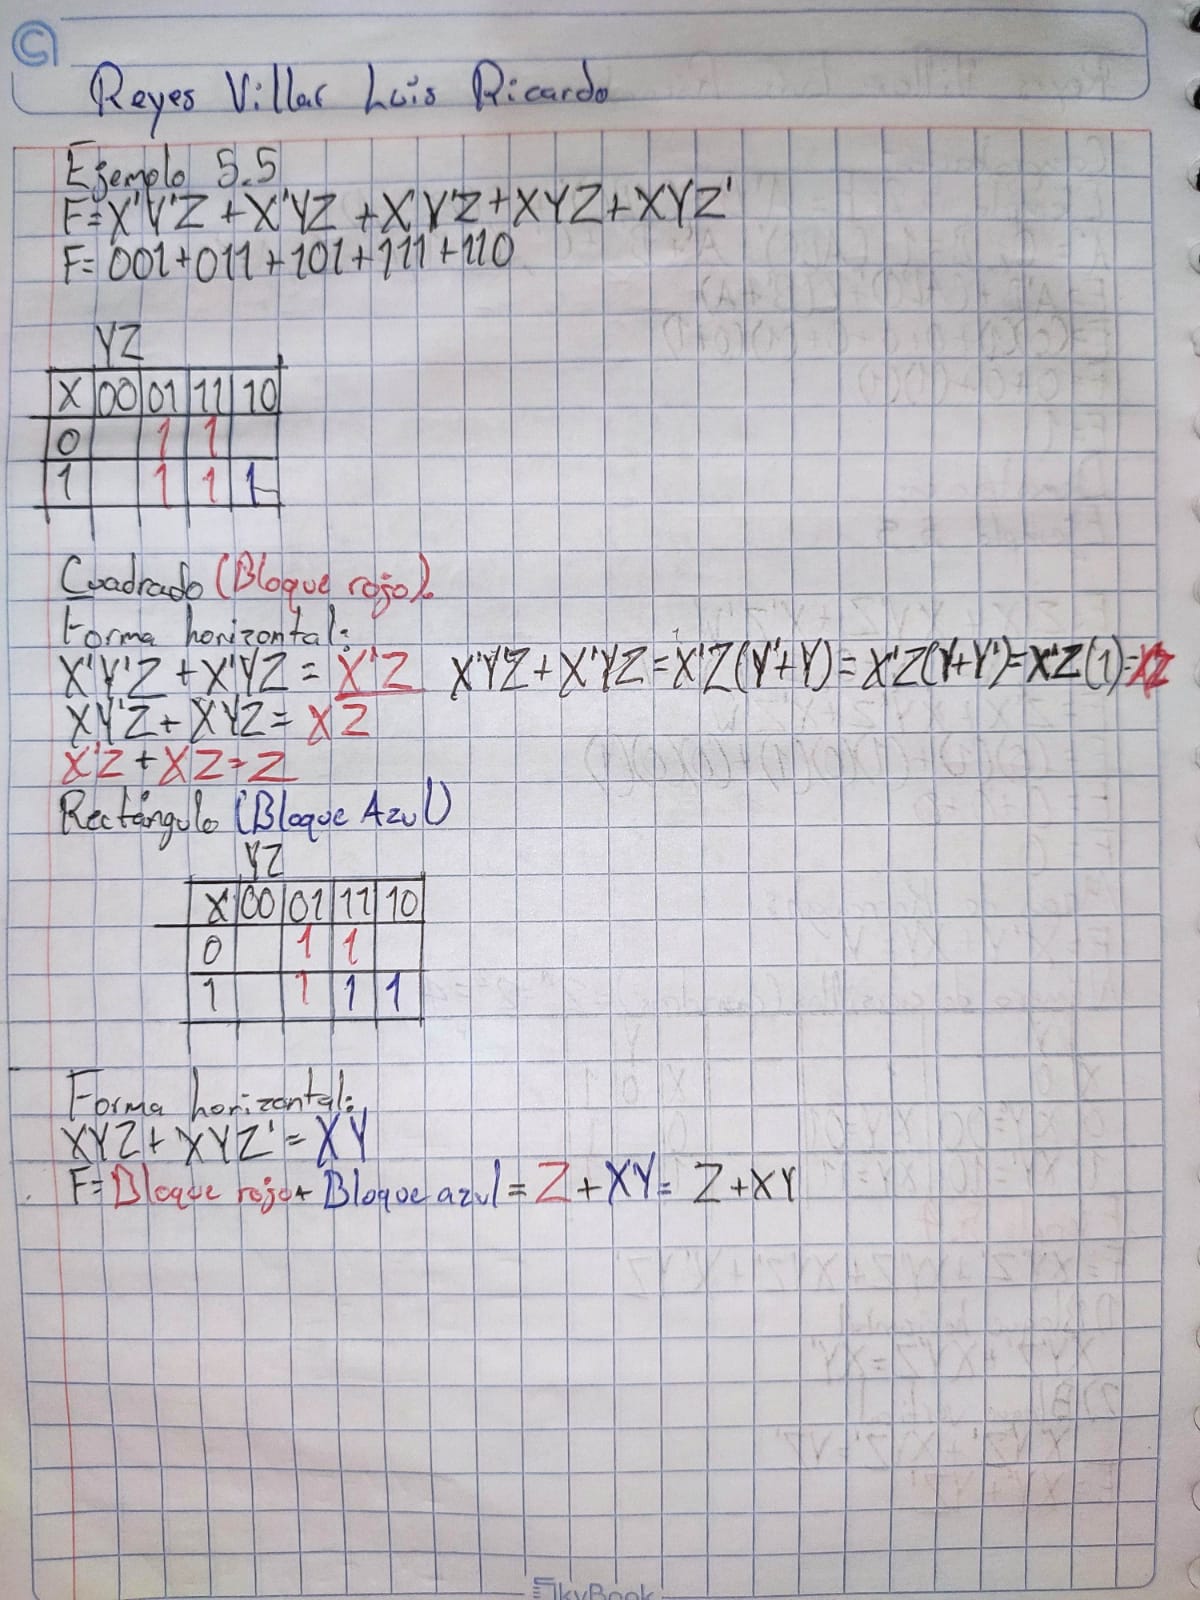 Reyes Villar Luis Ricardo
Ejemplo 5.5
F=X'Y'Z +X'YZ +XY'Z+XYZ+XYZ'
F= 001+011+101+111+110
YZ
X 00 01 11 10
0 1 1
1 1 1 1
Cuadrado (Bloque rojo).
Forma horizontal:
X'Y'Z +X'YZ = X'Z X'Y'Z + X'YZ =X'Z(Y'+Y)= X'Z(Y+Y')=X'Z(1)=X'Z
XY'Z+XYZ= XZ
X'Z+XZ=Z
Rectángulo (Bloque Azul)
YZ
X 00 01 11 10
0 1 1
1 1 1 1
Forma horizontal:
XYZ+XYZ'=XY
F=Bloque rojo+ Bloque azul = Z+XY= Z+XY
SkyBook